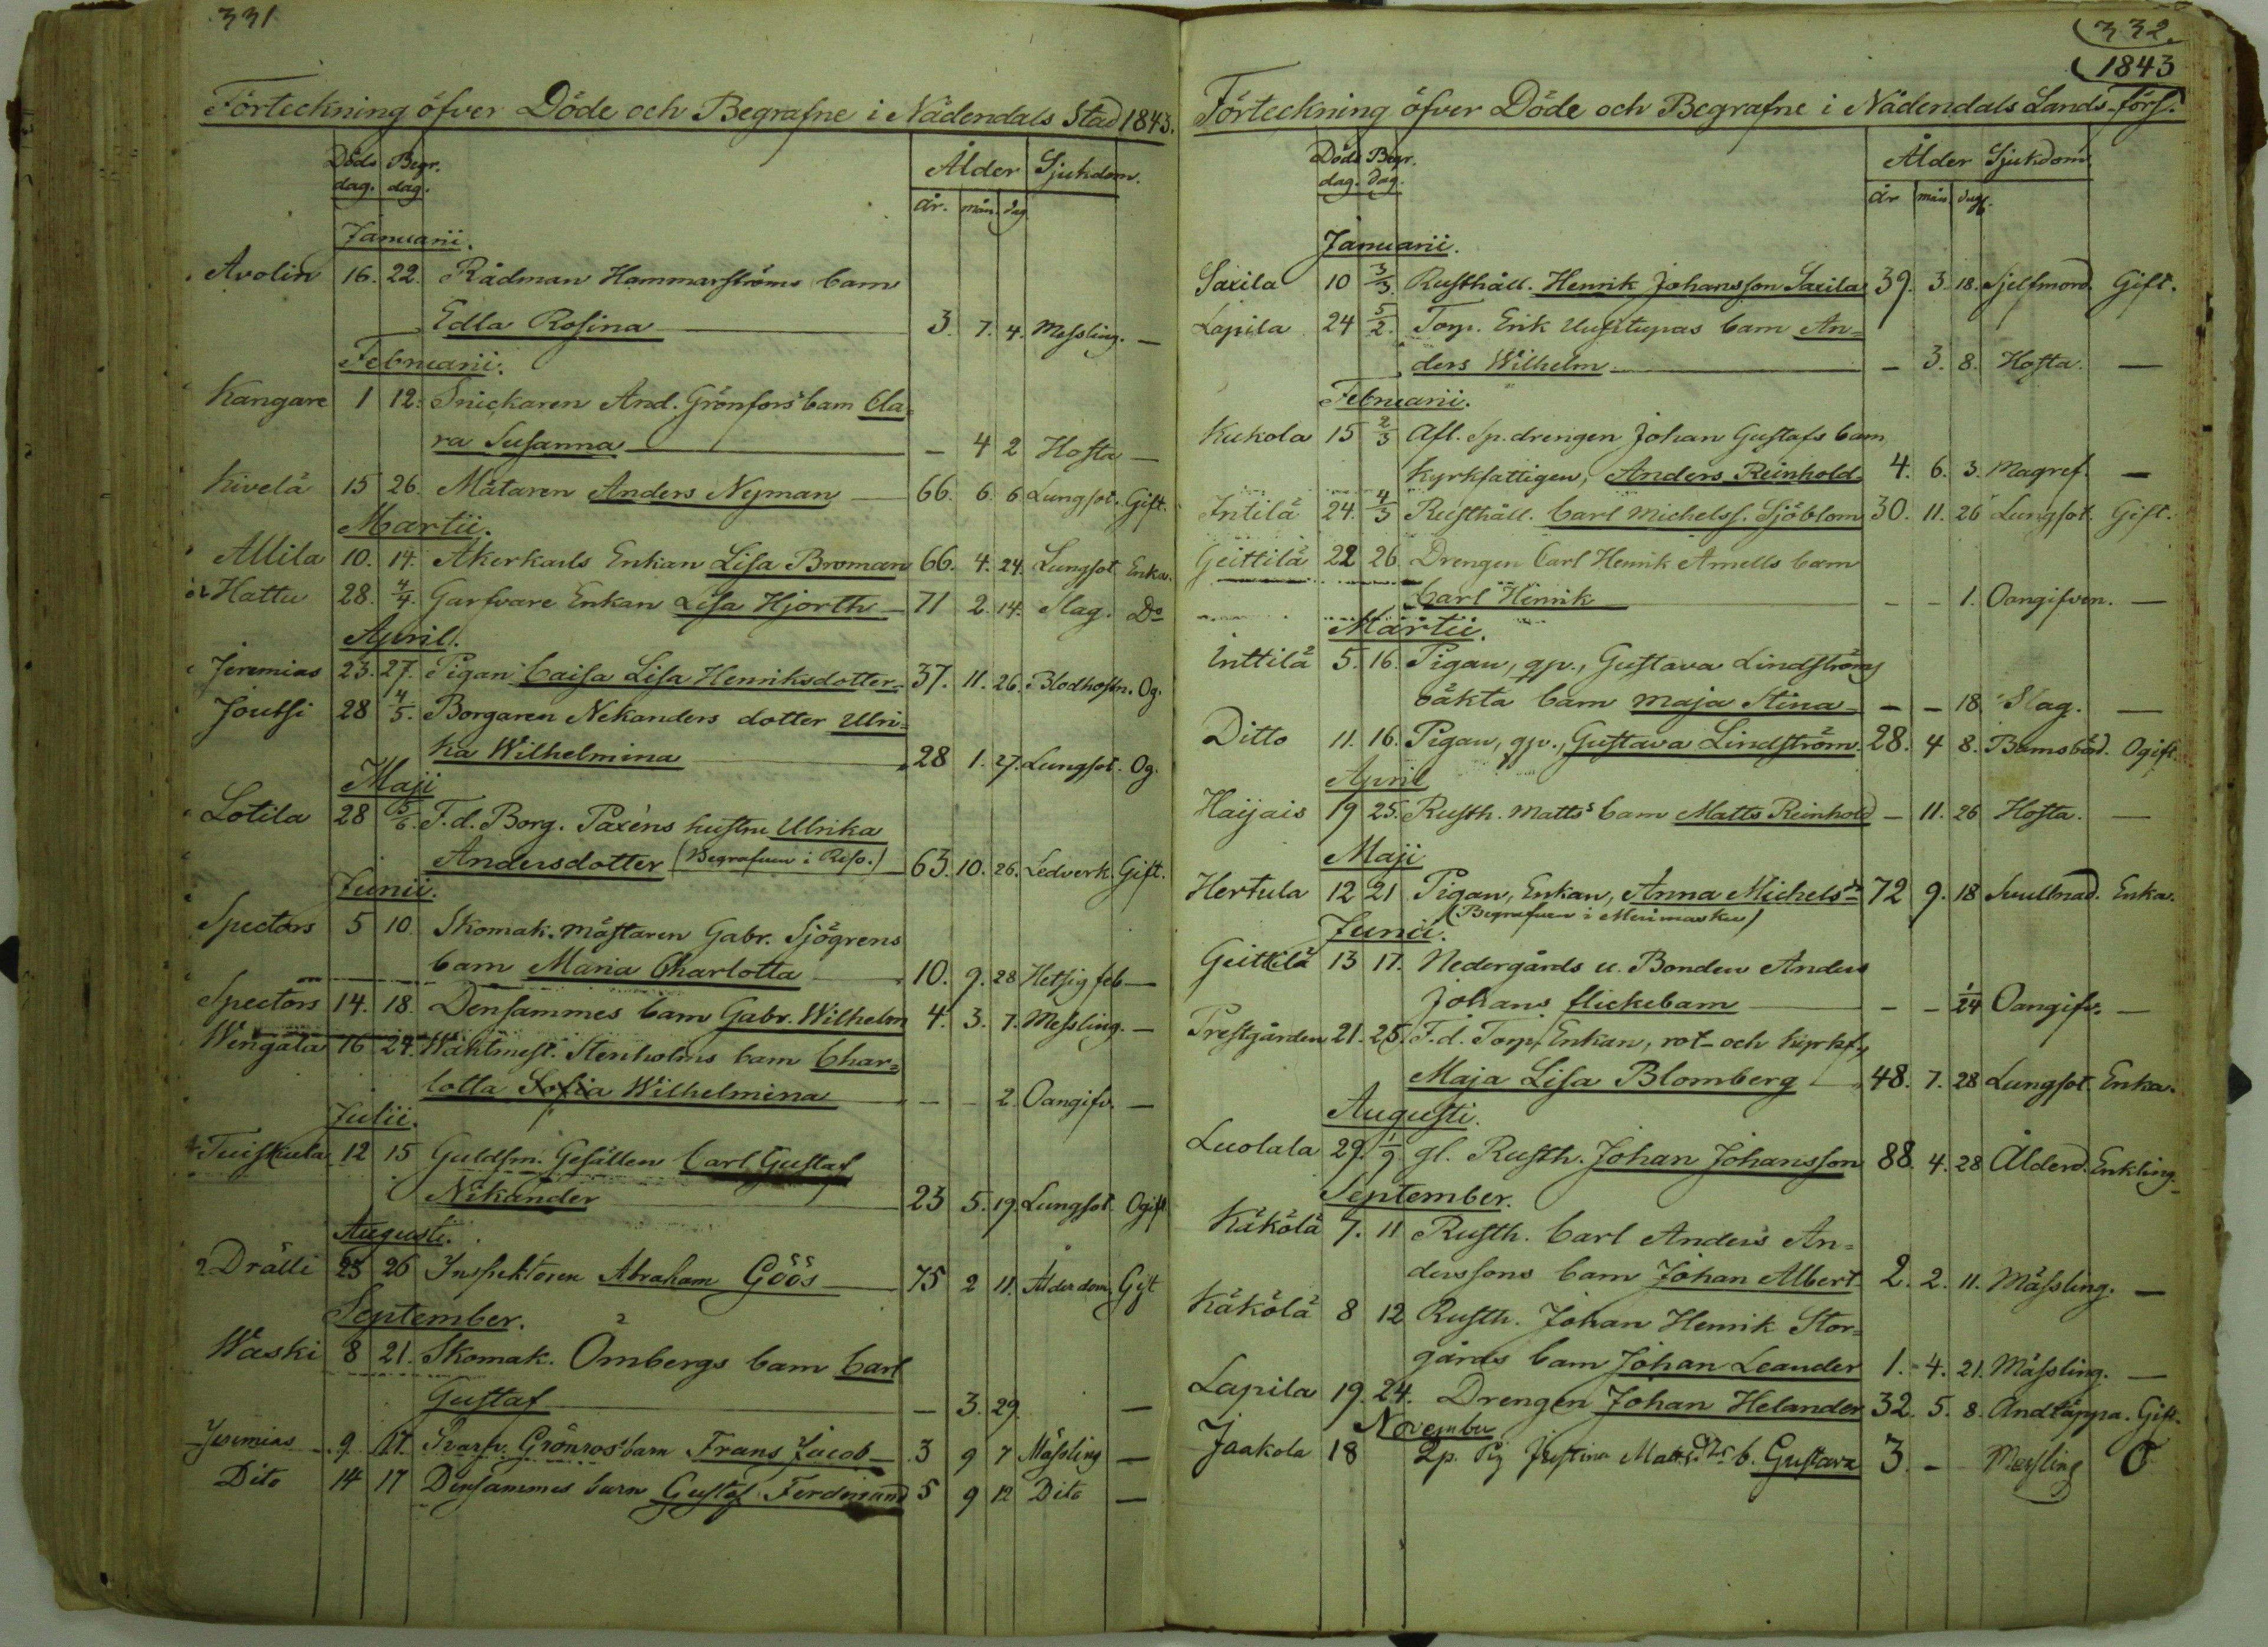 331
Förteckning öfver Döde och Begrafne i Nådendals Stad 1843.
Döds Begr. Ålder Sjukdom.
dag. dag.
år. mån. dag
Januarii.
Avolin 16. 22. Rådman Hammarströms barn
Edla Rosina 3. 7. 4. Messling. —
Februarii.
Kangare 1 12. Snickaren And. Grönfors's barn Cla=
ra Susanna — 4 2 Hosta —
Kivelä 15 26. Mätaren Anders Nyman 66. 6. 6 Lungsot. Gift.
Martii.
Allila 10. 14. Åkerkarls Enkan Lisa Broman 66. 4. 24. Lungsot Enka.
Hattu 28. 4/4. Garfvare Enkan Lisa Hjorth 71 2. 14. Slag. Do
April.
Jeremias 23. 27. Pigan Caisa Lisa Henriksdotter 37. 11. 26. Blodhostn. Og.
Joutsi 28 4/5. Borgaren Nekanders dotter Ulri=
ka Wilhelmina 28 1. 27. Lungsot. Og.
Maji
Lotila 28 5/6. F.d. Borg. Paxéns hustru Ulrika
Andersdotter (Begrafven i Reso.) 63. 10. 26. Ledverk. Gift.
Junii.
Spectors 5 10 Skomak. mästaren Gabr. Sjögrens
barn Maria Charlotta 10. 9. 28 Hetsig feb —
Spectors 14. 18. Densammes barn Gabr. Wilhelm 4. 3. 7. Messling. —
Wingala 16 24. Wäktmest. Stenholms barn Char=
lotta Sofia Wilhelmina — — 2. Oangifv. —
Julii.
Tuiskula 12 15 Guldsm. Gesällen Carl Gustaf
Nikander 23 5. 19. Lungsot Ogift
Augusti.
Drälli 23 26 Inspektoren Abraham Göös 75 2 11. Ålderdom Gift
September.
Waski 8 21. Skomak. Ömbergs barn Carl
Gustaf — 3. 29. —
Jeremias 9 17. Svarfv. Grönros' barn Frans Jacob 3 9 7 Mässling —
Dito 14 17 Densammes barn Gustaf Ferdinand 5 9 12 Dito —
332.
1843
Förteckning öfver Döde och Begrafne i Nådendals Lands-förs.
Döds Begr. Ålder Sjukdom
dag. dag.
år mån. dag.
Januarii.
Saxila 10 3/3. Rusthåll. Henrik Johansson Saxila 39. 3. 18. Sjelfmord. Gift.
Lapila 24 5/2. Torp. Erik Uusitupas barn An=
ders Wilhelm — 3. 8. Hosta. —
Februarii.
Kukola 15 2/3 Afl. Sp. drengen Johan Gustafs barn
kyrkfattigen, Anders Reinhold 4. 6. 3. Magref. —
Intilä 24. 4/3 Rusthåll. Carl Michelss. Sjöblom 30. 11. 26 Lungsot. Gift.
Geittilä 22 26 Drengen Carl Henrik Arnells barn
Carl Henrik — — 1. Oangifven. —
Martii.
Inttilä 5. 16. Pigan, qp., Gustava Lindströms
oäkta barn Maja Stina — — 18. Slag. —
Ditto 11. 16. Pigan, qp., Gustava Lindström. 28. 4 8. Barnsbörd. Ogift.
April
Haijais 19 25. Rusth. Matts's barn Matts Reinhold — 11. 26 Hosta. —
Maji
Hertula 12 21 Pigan, Enkan, Anna Michelsdr 72 9. 18 Svullnad. Enka.
(Begrafven i Merimasku)
Junii.
Geittilä 13 17. Nedergårds u. Bonden Anders
Johans flickebarn — — 1/24 Oangifv. —
Prestgården 21. 25. F.d. Torp. Enkan, rot- och kyrkf.,
Maja Lisa Blomberg 48. 7. 28 Lungsot. Enka.
Augusti.
Luolala 29. 1/9. gl. Rusth. Johan Johansson 88. 4. 28 Ålderd. Enkling.
September.
Käkölä 7. 11 Rusth. Carl Anders An=
derssons barn Johan Albert 2. 2. 11. Mässling. —
Käkölä 8 12 Rusth. Johan Henrik Stor=
gårds barn Johan Leander 1. 4. 21. Mässling. —
Lapila 19. 24. Drengen Johan Helander 32. 5. 8. Andtäppa. Gift.
November
Jaakola 18 Qp. Pig Justina Matsdr b. Gustava 3. — Messling O